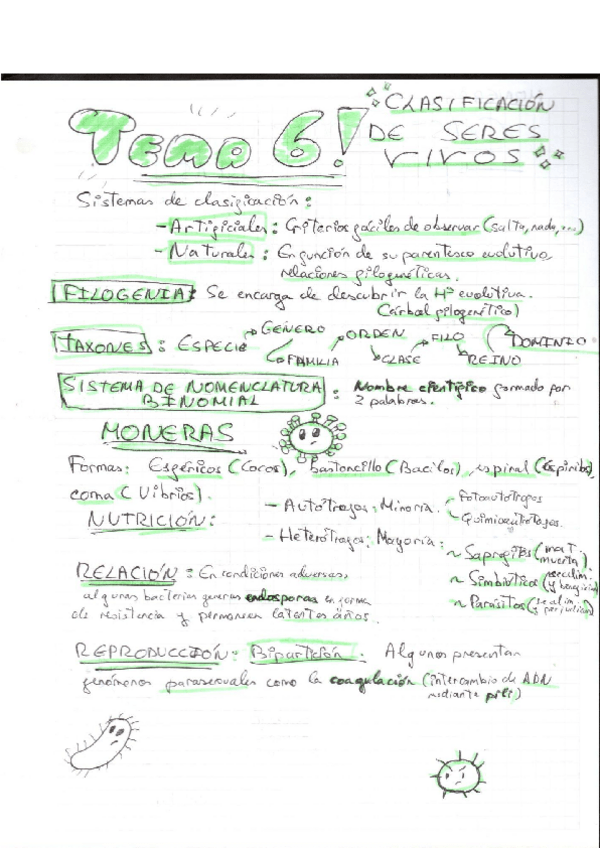 TEMA 6! CLASIFICACIÓN
DE SERES
VIVOS
Sistemas de clasificación:
- Artificiales: Criterios fáciles de observar (salta, nada, ...)
- Naturales: En función de su parentesco evolutivo,
relaciones filogenéticas.
FILOGENIA: Se encarga de descubrir la Hª evolutiva.
(árbol filogenético)
TAXONES: ESPECIE GÉNERO FAMILIA ORDEN CLASE FILO REINO DOMINIO
SISTEMA DE NOMENCLATURA
BINOMIAL: Nombre científico formado por
2 palabras.
MONERAS
Formas: Esféricos (Cocos), bastoncillo (Bacilos), espiral (Espirilos),
coma (Vibrios).
NUTRICIÓN:
- Autótrofos: Minoría. Fotoautótrofos
Quimioautótrofos.
- Heterótrofos: Mayoría:
~ Saprofitos (mat. muerta)
~ Simbióticos (y
~ Parásitos (se alim. y perjudican)
RELACIÓN: En condiciones adversas,
algunas bacterias generan endosporas en forma
de resistencia y permanecen latentes años.
REPRODUCCIÓN: Bipartición: Algunos presentan
fenómenos parasexuales como la coagulación (intercambio de ADN
mediante pili)